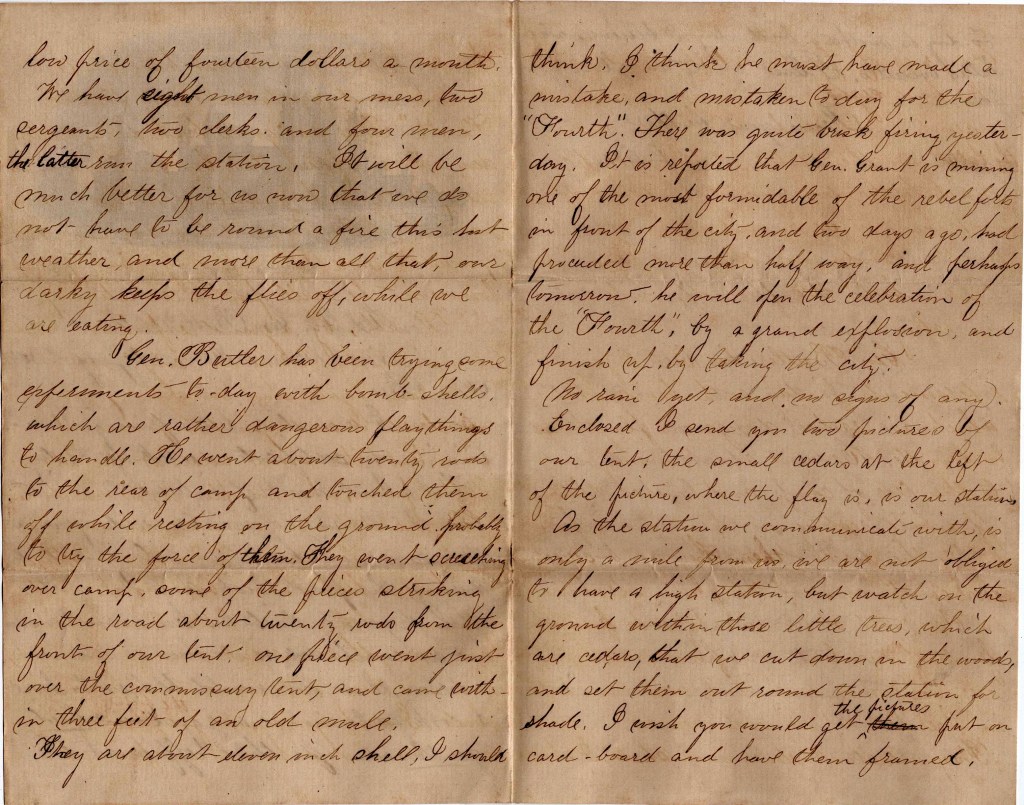 low price of fourteen dollars a month.
We have eight men in our mess, two
sergeants, two clerks. and four men,
the latter run the station. It will be
much better for us now that we do
not have to be round a fire this hot
weather, and more than all that, our
darky keeps the flies off, while we
are eating.
Gen. Butler has been trying some
experiments to-day with bomb-shells.
which are rather dangerous playthings
to handle. He went about twenty rods
to the rear of camp and touched them
off while resting on the ground probably
to try the force of them. They went screeching
over camp, some of the pieces striking
in the road about twenty rods from the
front of our tent. one piece went just
over the commissary tent, and came with-
in three feet of an old mule.
They are about eleven inch shell, I should
think. I think he must have made a
mistake, and mistaken to-day for the
"Fourth". There was quite brisk firing yester-
day. It is reported that Gen. Grant is mining
one of the most formidable of the rebel forts
in front of the city, and two days ago, had
proceeded more than half way, and perhaps
tomorrow, he will open the celebration of
the "Fourth", by a grand explosion, and
finish up, by taking the city.
No rain yet, and no signs of any.
Enclosed I send you two pictures of
our tent, the small cedars at the left
of the picture, where the flag is, is our station.
As the station we communicate with, is
only a mile from us, we are not obliged
to have a high station, but watch on the
ground within those little trees, which
are cedars, that we cut down in the woods,
and set them out round the station for
shade. I wish you would get the pictures them put on
card-board and have them framed.